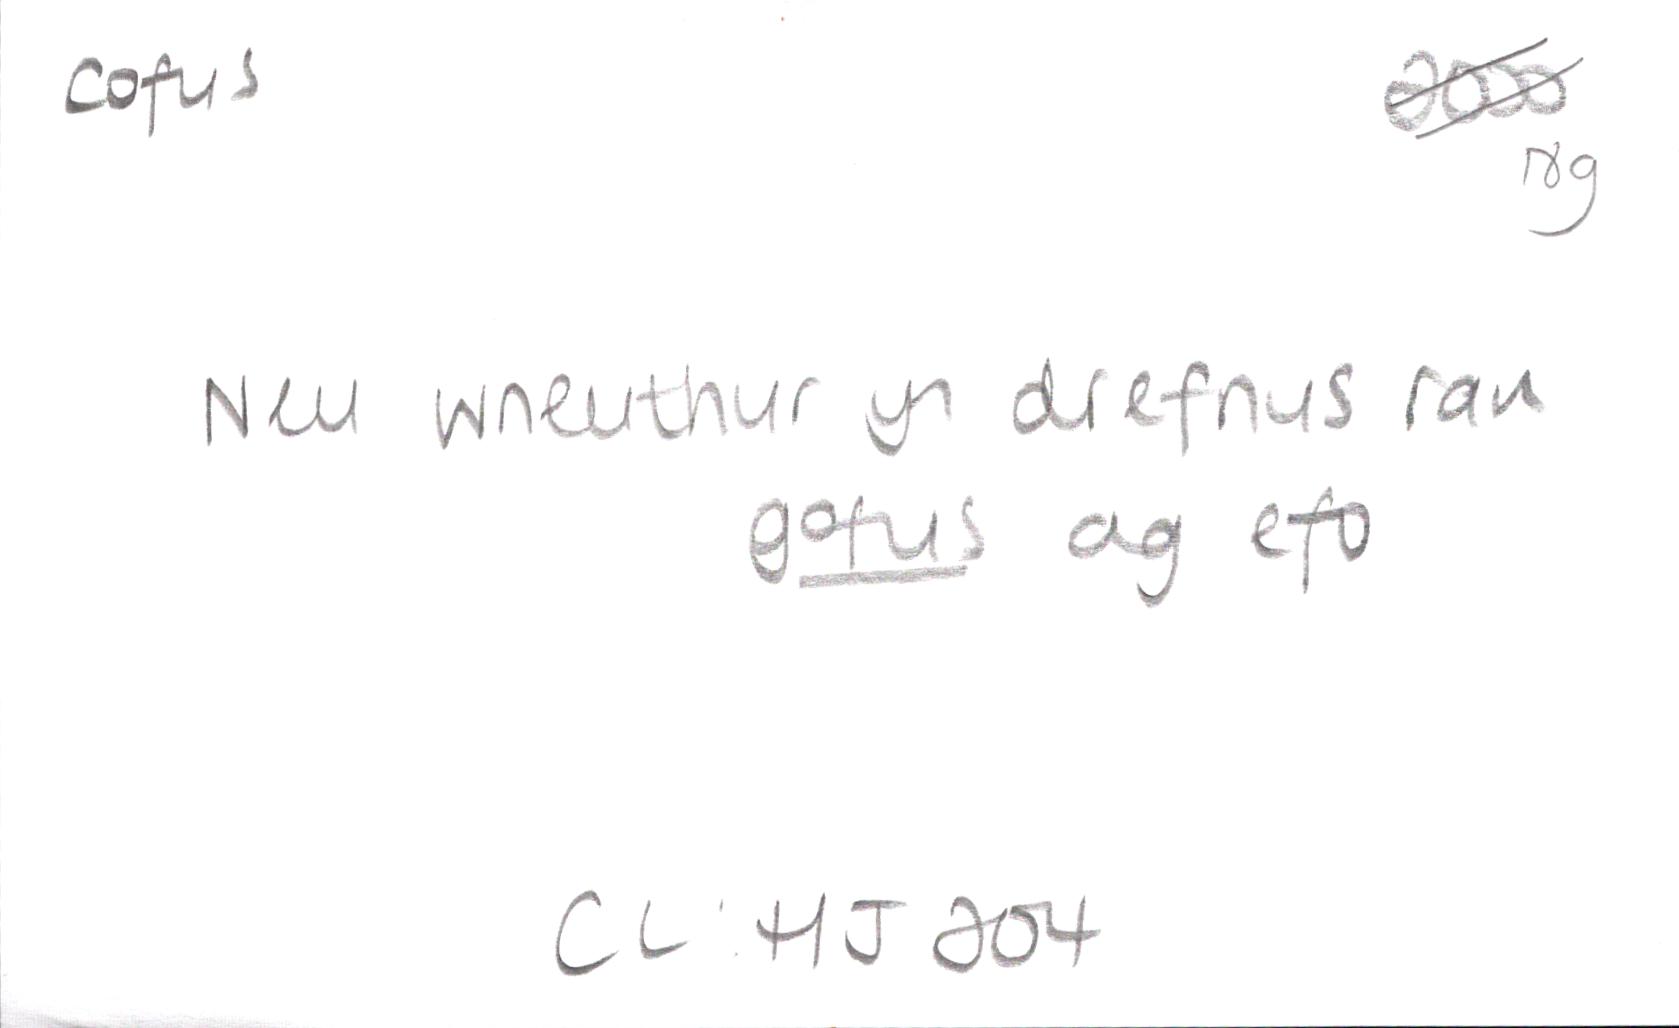 Cofus
Neu wneuthur yn drefnus ran
gofus ag efo
CL: HJ 204